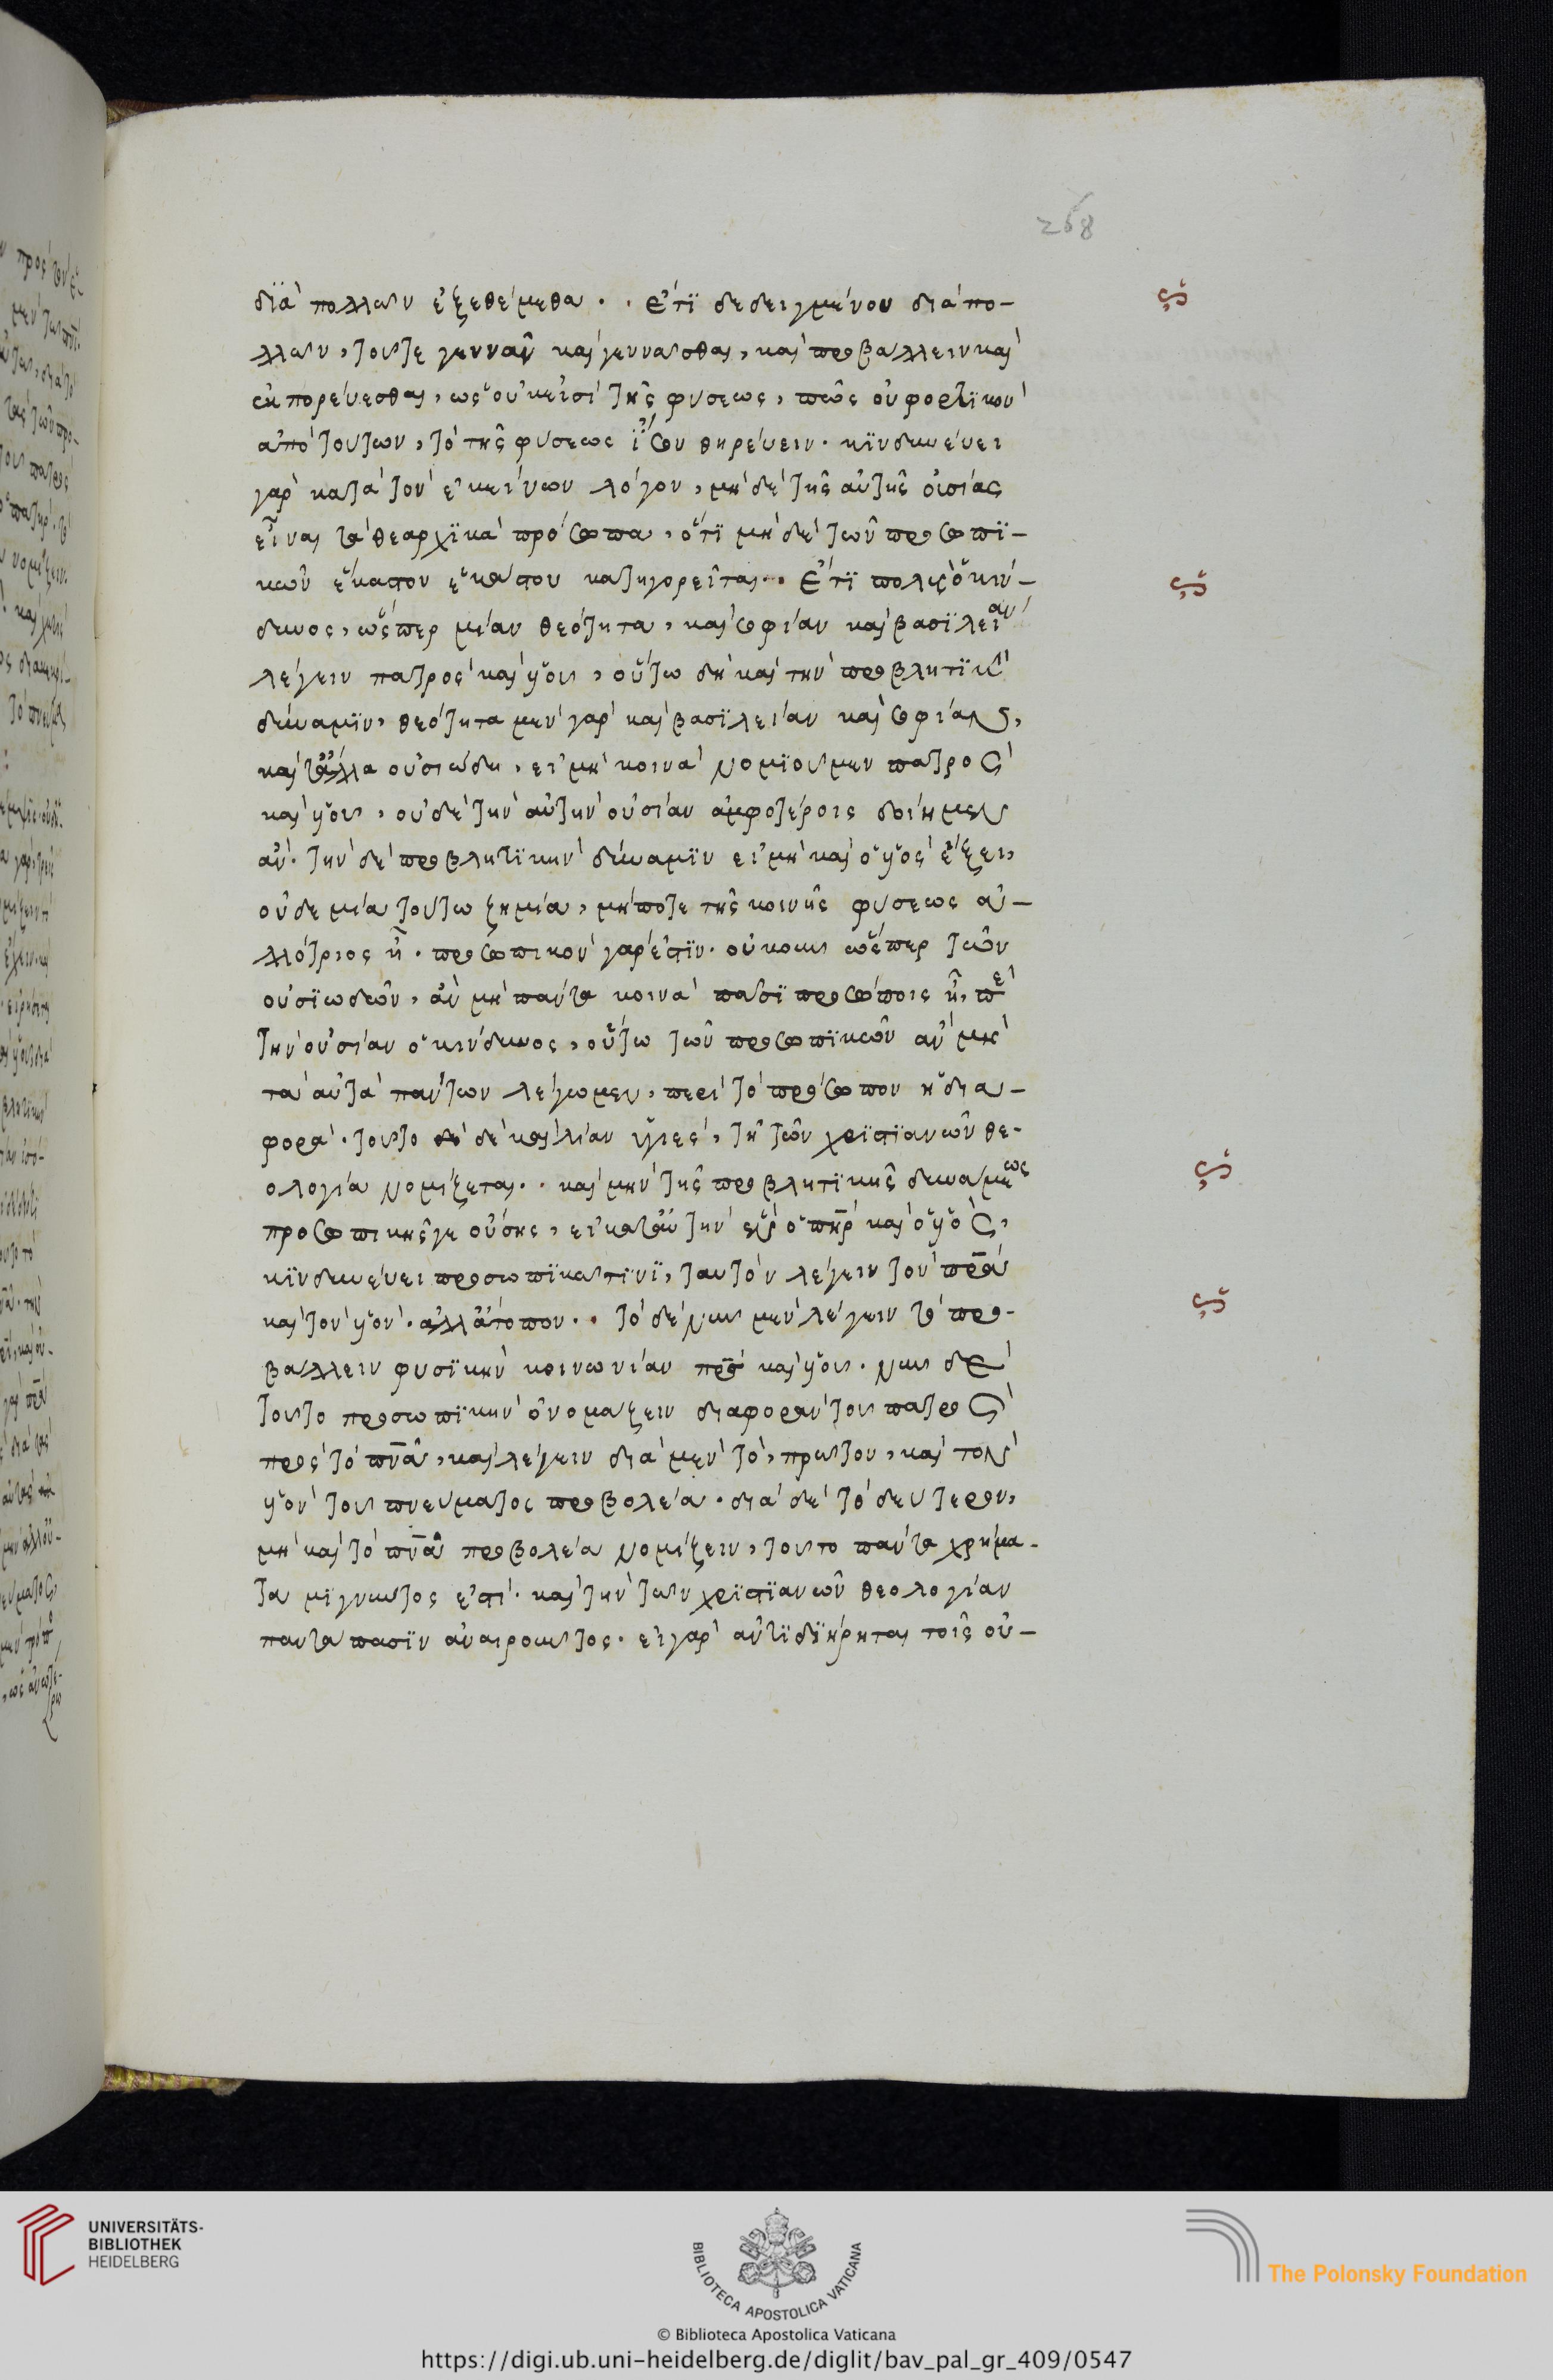 268
διὰ πολλῶν ἐξεθέμεθα. . Ἔτι δεδειγμένου διὰ πο-
λλῶν, τοῦτε γεννᾶν καὶ γεννᾶσθαι, καὶ προβάλλειν καὶ
ἐκπορεύεσθαι, ὡς οὐκ εἰσὶ τῆς φύσεως, πῶς οὐ φορτικὸν
ἀπὸ τούτων, τὸ τῆς φύσεως ἴσον θηρεύειν. κινδυνεύει
γὰρ κατὰ τὸν ἐκείνων λόγον, μηδὲ τῆς αὐτῆς οὐσίας
εἶναι τὰ θεαρχικὰ πρόσωπα, ὅτι μηδὲ τῶν προσωπι-
κῶν ἕκαστον ἑκάστου κατηγορεῖται. . Ἔτι πολὺς ὁ κίν-
δυνος, ὥσπερ μίαν θεότητα, καὶ σοφίαν καὶ βασιλείαν
λέγειν πατρὸς καὶ υἱοῦ, οὕτω δὴ καὶ τὴν προβλητικὴν
δύναμιν, θεότητα μὲν γὰρ καὶ βασιλείαν καὶ σοφίαν,
καὶ τἄλλα οὐσιώδη, εἰ μὴ κοινὰ νομιοῦμεν πατρὸς
καὶ υἱοῦ, οὐδὲ τὴν αὐτὴν οὐσίαν ἀμφοτέροις δοίημεν
ἄν. τὴν δὲ προβλητικὴν δύναμιν εἰ μὴ καὶ ὁ υἱὸς ἕξει,
οὐδεμία τούτω ζημία, μήποτε τῆς κοινῆς φύσεως ἀ-
λλότριος ᾖ. προσωπικὸν γάρ ἐστιν. οὐκοῦν ὥσπερ τῶν
οὐσιωδῶν, ἂν μὴ πάντα κοινὰ πᾶσι προσώποις ᾖ, περὶ
τὴν οὐσίαν ὁ κίνδυνος, οὕτω τῶν προσωπικῶν ἂν μὴ
τὰ αὐτὰ πάντων λέγωμεν, περὶ τὸ πρόσωπον ἡ δια-
φορά. τοῦτο δὲ καὶ λίαν ὑγιὲς, τῇ τῶν χριστιανῶν θε-
ολογία νομίζεται. . καὶ μὴν τῆς προβλητικῆς δυνάμεως
προσωπικῆς γε οὔσης, εἰ κατ' αὐτὴν εἷς ὁ πηρ καὶ ὁ υἱὸς,
κινδυνεύει προσωπικῶ τινὶ, ταυτὸν λέγειν τὸν πρα
καὶ τὸν υἱόν. ἀλλ' ἄτοπον. . τὸ δὲ νῦν μὲν λέγειν τὸ προ-
βάλλειν φυσικὴν κοινωνίαν πρς καὶ υἱοῦ. νῦν δὲ
τοῦτο προσωπικὴν ὀνομάζειν διαφορὰν τοῦ πατρὸς
πρὸς τὸ πνα, καὶ λέγειν διὰ μὲν τὸ, πρῶτον, καὶ τὸν
υἱὸν τοῦ πνεύματος προβολέα. διὰ δὲ τὸ δεύτερον,
μὴ καὶ τὸ πνα προβολέα νομίζειν, τοῦτο πάντα χρήμα-
τα μιγνῦντος ἐστί. καὶ τὴν τῶν χριστιανῶν θεολογίαν
παντάπασιν ἀναιροῦντος. εἰ γὰρ ἀντιδιῄρηται τοῖς οὐ-
UNIVERSITÄTS-
BIBLIOTHEK
HEIDELBERG
BIBLIOTECA APOSTOLICA VATICANA
The Polonsky Foundation
© Biblioteca Apostolica Vaticana
https://digi.ub.uni-heidelberg.de/diglit/bav_pal_gr_409/0547